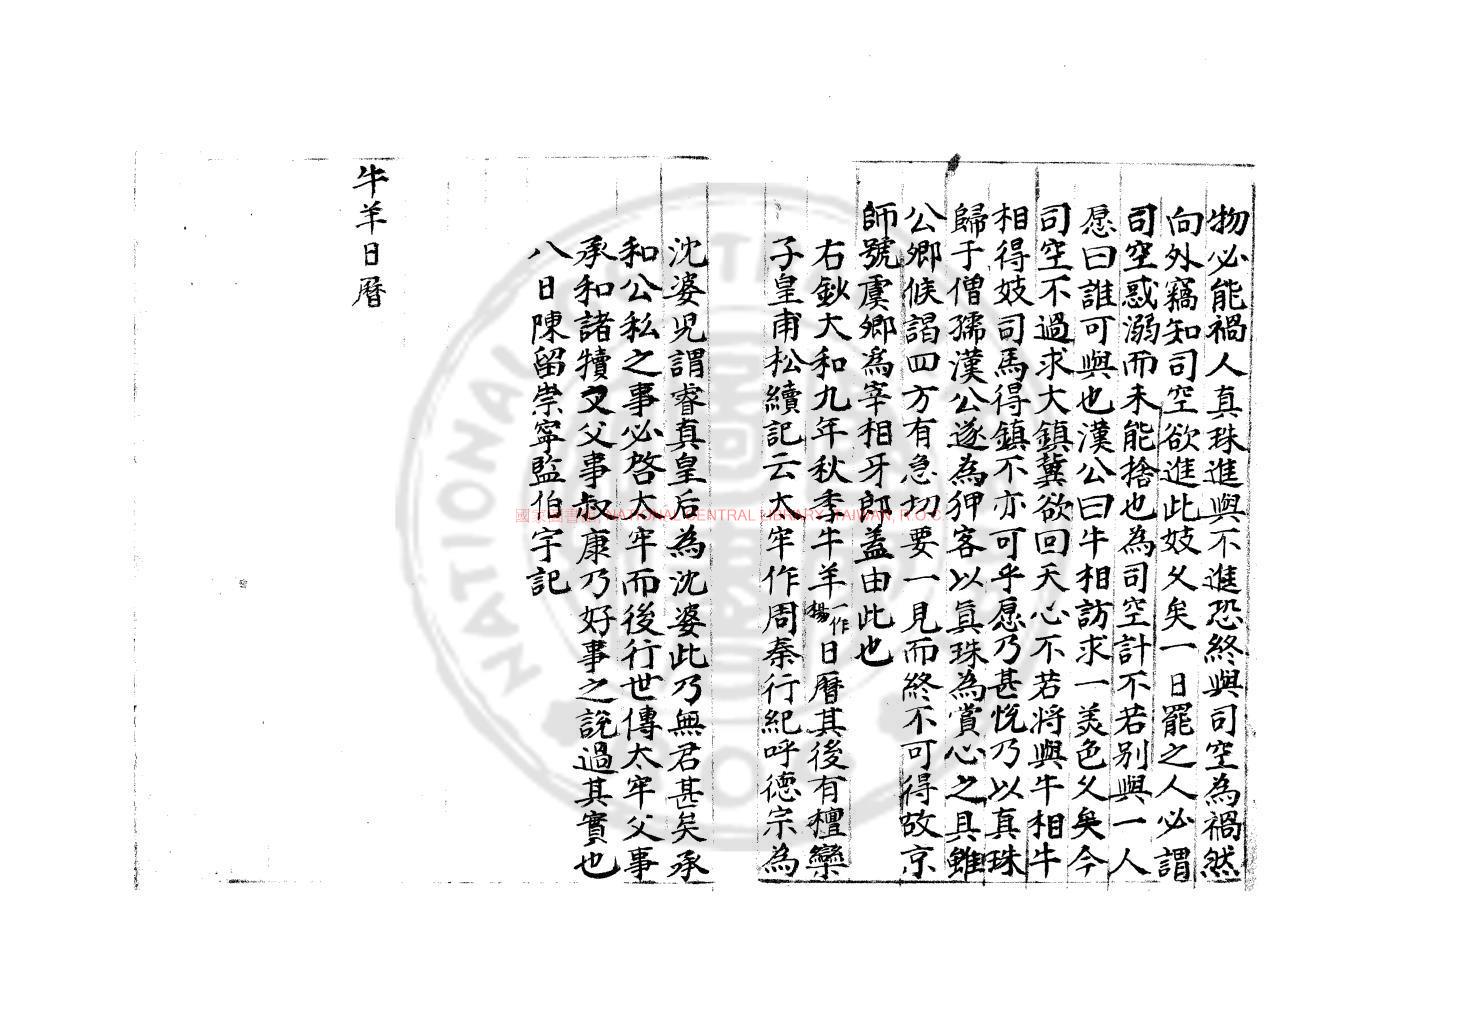 物必能禍人真珠進與不進恐終與司空為禍然
向外竊知司空欲進此妓久矣一日罷之人必謂
司空惑溺而未能捨也為司空計不若别與一人
愿曰誰可與也漢公曰牛相訪求一美色久矣今
司空不過求大鎮冀欲回天心不若将與牛相牛
相得妓司馬得鎮不亦可乎愿乃甚悅乃以真珠
歸于僧孺漢公遂為狎客以真珠為賞心之具雖
公卿候謁四方有急切要一見而終不可得故京
師號虞卿為宰相牙郎蓋由此也
右鈔大和九年秋季牛羊一作楊日曆其後有檀欒
子皇甫松續記云太牢作周秦行紀呼德宗為
沈婆児謂睿真皇后為沈婆此乃無君甚矣承
和公私之事必啓太牢而後行世傳太牢父事
承和諸犢又父事叔康乃好事之説過其實也
八日陳留崇寧監伯宇記
牛羊日曆
國家圖書館, NATIONAL CENTRAL LIBRARY, TAIWAN, R.O.C.